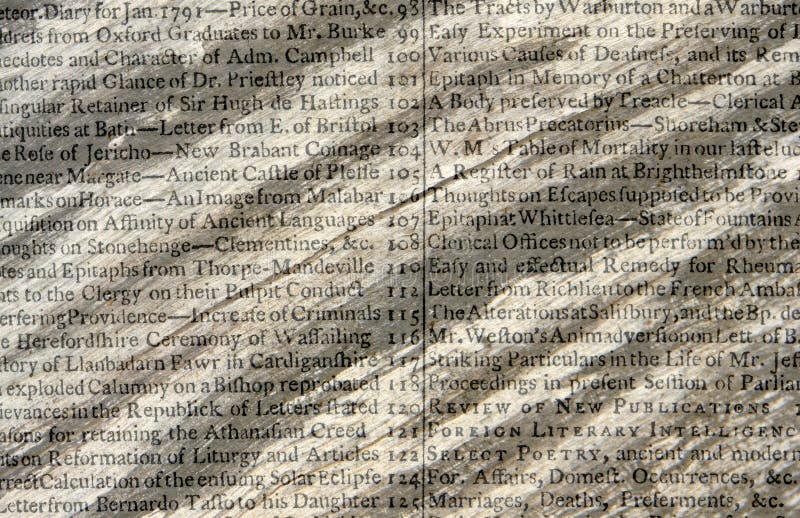 eteor. Diary for Jan. 1791—Price of Grain, &c. 98
ddreſs from Oxford Graduates to Mr. Burke 99
necdotes and Character of Adm. Campbell 100
nother rapid Glance of Dr. Prieſtley noticed 101
ſingular Retainer of Sir Hugh de Haſtings 102
ntiquities at Bath—Letter from E. of Briſtol 103
e Roſe of Jericho—New Brabant Coinage 104
ene near Margate—Ancient Caſtle of Pleſſe 105
marks on Horace—An Image from Malabar 106
quiſition on Affinity of Ancient Languages 107
oughts on Stonehenge—Clementines, &c. 108
tes and Epitaphs from Thorpe-Mandeville 110
nts to the Clergy on their Pulpit Conduct 112
erfering Providence—Increaſe of Criminals 115
e Herefordſhire Ceremony of Waſſailing 116
ſtory of Llanbadarn Fawr in Cardiganſhire 117
n exploded Calumny on a Biſhop reprobated 118
ievances in the Republick of Letters ſtated 120
aſons for retaining the Athanaſian Creed 121
its on Reformation of Liturgy and Articles 122
rrect Calculation of the enſuing Solar Eclipſe 124
etter from Bernardo Taſſo to his Daughter 125
The Tracts by Warburton and a Warburt
Eaſy Experiment on the Preſerving of
Various Cauſes of Deafneſs, and its Rem
Epitaph in Memory of a Chatterton at B
A Body preſerved by Treacle—Clerical A
The Abrus Precatorius—Shoreham & Ste
W. M's Table of Mortality in our laſt elud
A Regiſter of Rain at Brighthelmſtone
Thoughts on Eſcapes ſuppoſed to be Provi
Epitaph at Whittleſea—State of Fountains A
Clerical Offices not to be perform'd by the
Eaſy and effectual Remedy for Rheuma
Letter from Richlieu to the French Ambaſ
The Alterations at Saliſbury, and the Bp. de
Mr. Weſton's Animadverſion on Lett. of B.
Striking Particulars in the Life of Mr. Jef
Proceedings in preſent Seſſion of Parlia
REVIEW OF NEW PUBLICATIONS
FOREIGN LITERARY INTELLIGENC
SELECT POETRY, ancient and modern
For. Affairs, Domeſt. Occurrences, &c.
Marriages, Deaths, Preferments, &c.